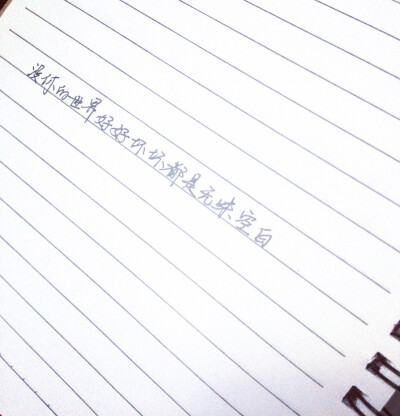 没你的世界好好坏坏都是无味空白